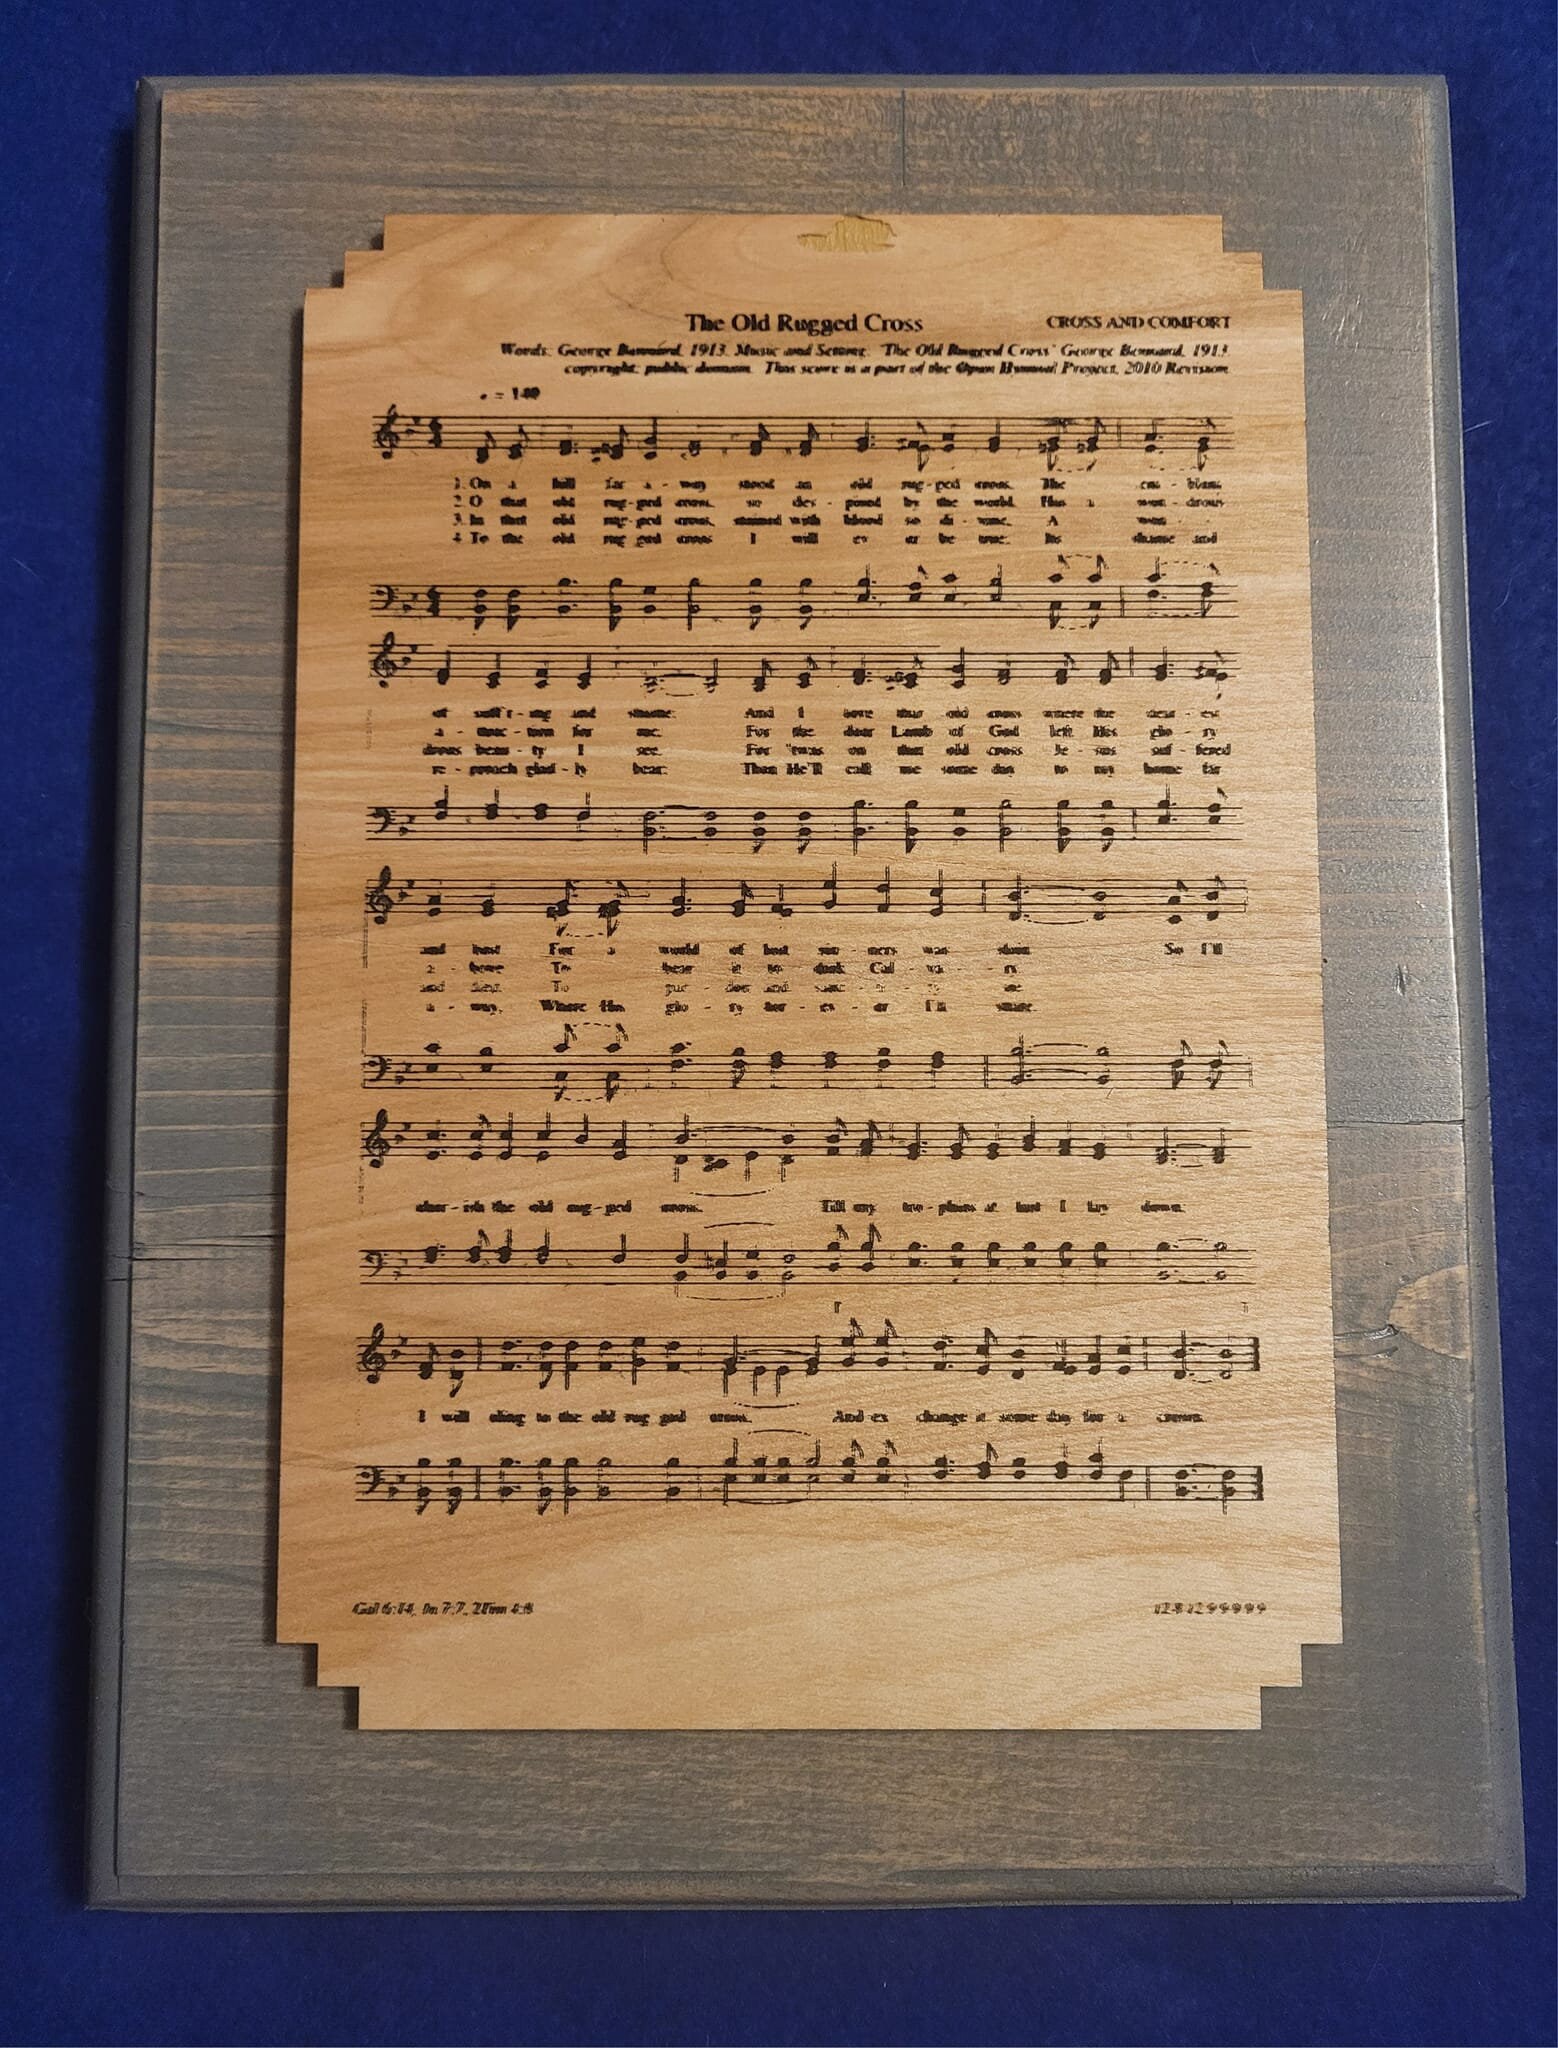 The Old Rugged Cross
CROSS AND COMFORT
Words: George Bennard, 1913. Music and Setting: 'The Old Rugged Cross' George Bennard, 1913.
copyright: public domain. This score is a part of the Open Hymnal Project, 2010 Revision.
= 140
1. On a hill far a - way stood an old rug - ged cross, The em - blem
2. O that old rug - ged cross, so des - pised by the world, Has a won - drous
3. In that old rug - ged cross, stained with blood so di - vine, A won -
4. To the old rug ged cross I will ev er be true; Its shame and
of suff'r - ing and shame; And I love that old cross where the dear - est
a - ttrac - tion for me; For the dear Lamb of God left His glo - ry
drous beau - ty I see, For 'twas on that old cross Je - sus suf - fered
re - proach glad - ly bear; Then He'll call me some day to my home far
and best For a world of lost sin - ners was slain. So I'll
a - bove To bear it to dark Cal - va - ry.
and died, To par - don and sanc - ti - fy me.
a - way, Where His glo - ry for - ev - er I'll share.
cher - ish the old rug - ged cross, Till my tro - phies at last I lay down;
I will cling to the old rug ged cross, And ex change it some day for a crown.
Gal 6:14, Jn 7:7, 2Tim 4:8